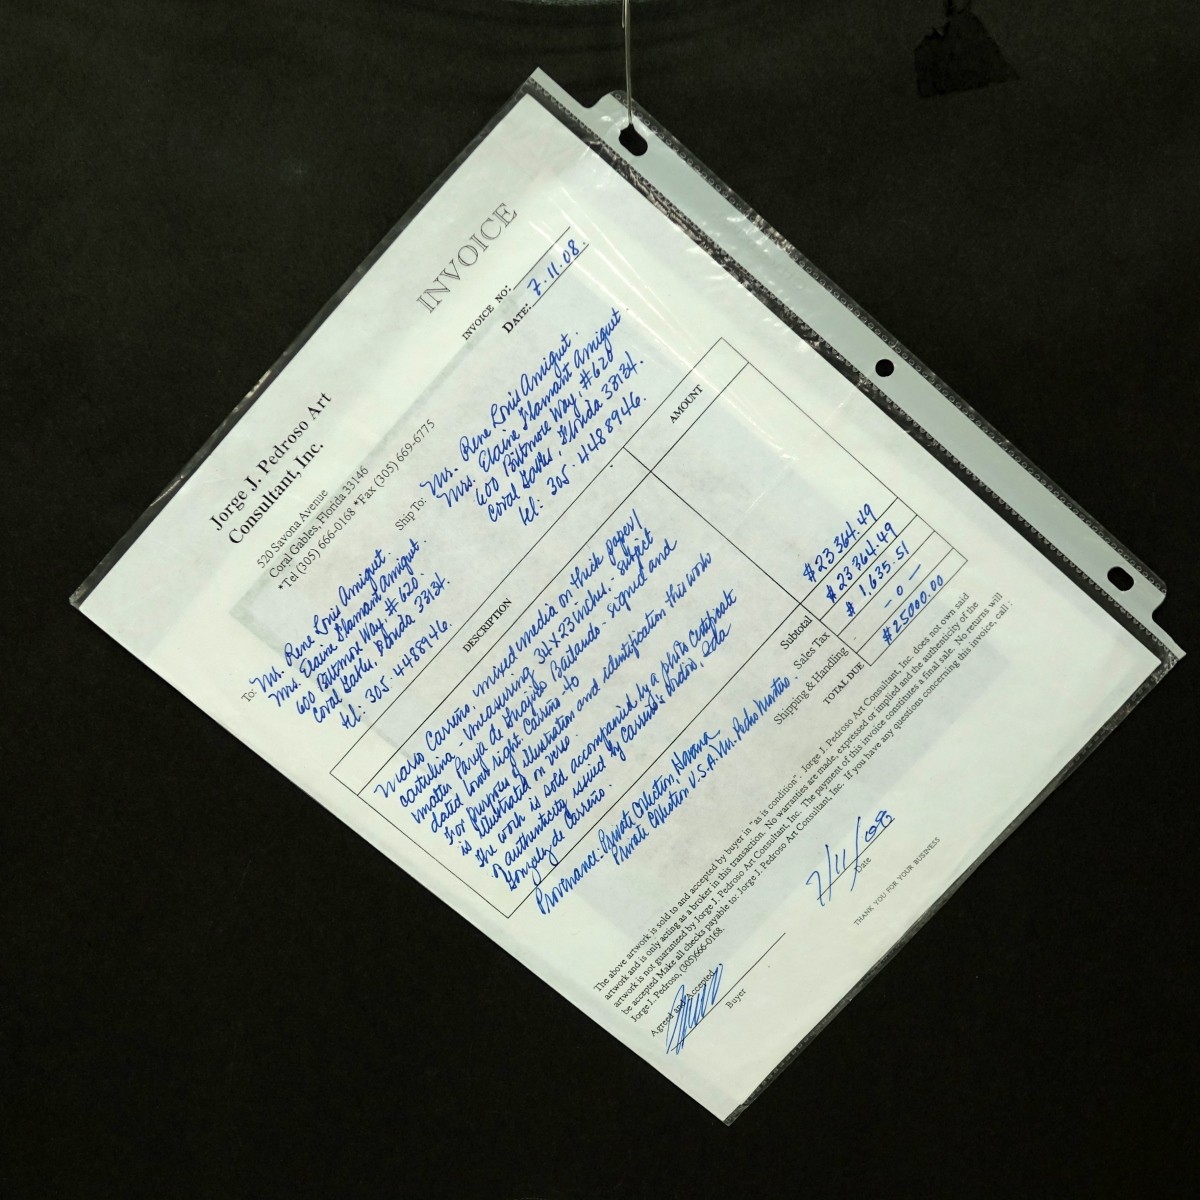 INVOICE
Jorge J. Pedroso Art
Consultant, Inc.
520 Savona Avenue
Coral Gables, Florida 33146
*Tel (305) 666-0168 *Fax (305) 669-6775
INVOICE NO:
DATE: 7.11.08.
To: Mr. Rene Louis Amiguet.
Mrs. Elaine Flamant Amiguet.
600 Biltmore Way. # 620.
Coral Gables, Florida 33134.
tel: 305.4488946.
Ship To: Mr. Rene Louis Amiguet.
Mrs. Elaine Flamant Amiguet
600 Biltmore Way, #620
Coral Gables. Florida 33134.
tel: 305.4488946.
DESCRIPTION
AMOUNT
Mario Carreño. mixed media on thick paper/
cartulina - measuring 34 X 23 inches. - subject
matter - Pareja de Guajiro Bailando - signed and
dated lower right Carreño-40
For purposes of illustration and identification this work
is illustrated on verso.
The work is sold accompanied by a photo certificate
of authenticity issued by Carreño's widow, Ida
Gonzalez de Carreño.
$23364.49
Subtotal $23364.49
Sales Tax $ 1,635.51
Shipping & Handling - 0 -
TOTAL DUE $25000.00
Provenance. Private Collection, Havana
Private Collection U.S.A. Mr. Pedro Montiro.
The above artwork is sold to and accepted by buyer in "as is condition". Jorge J. Pedroso Art Consultant, Inc. does not own said
artwork and is only acting as a broker in this transaction. No warranties are made, expressed or implied and the authenticity of the
artwork is not guaranteed by Jorge J. Pedroso Art Consultant, Inc. The payment of this invoice constitutes a final sale. No returns will
be accepted Make all checks payable to: Jorge J. Pedroso Art Consultant, Inc. If you have any questions concerning this invoice, call :
Jorge J.. Pedroso, (305)666-0168.
Agreed and Accepted
Buyer
7/11/08
Date
THANK YOU FOR YOUR BUSINESS